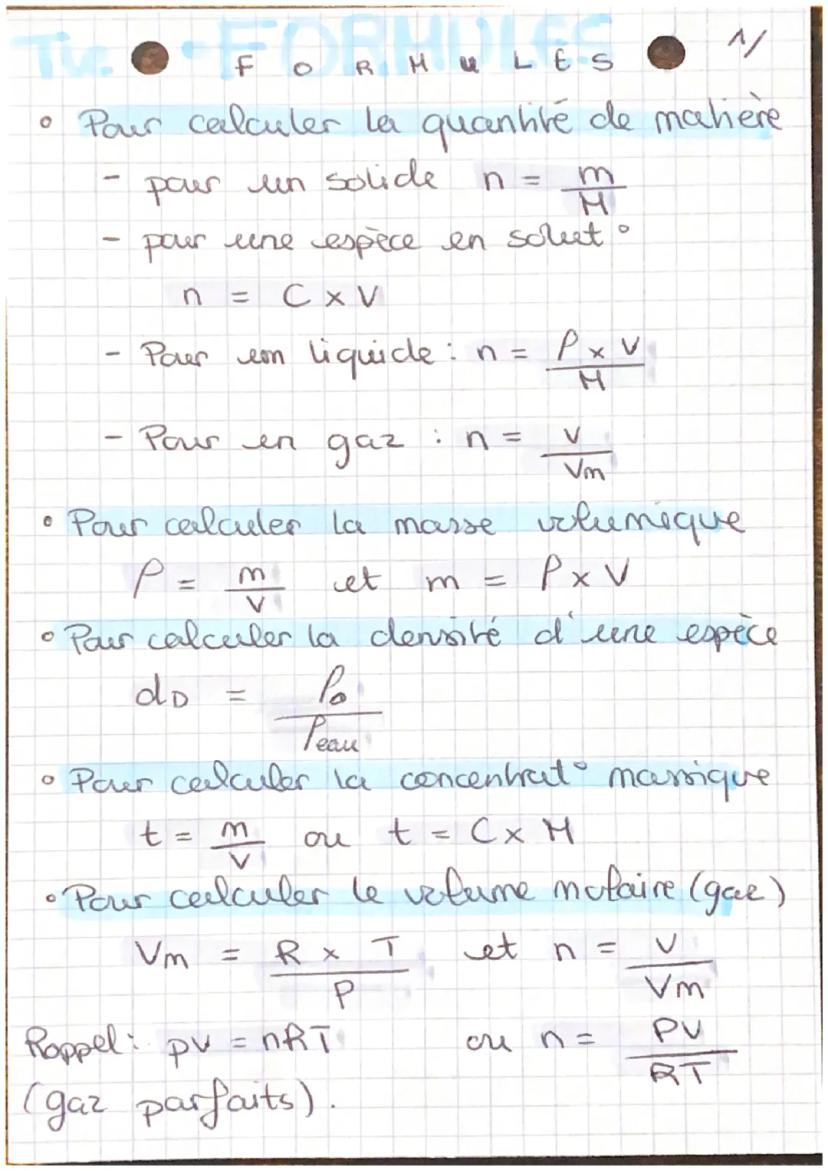 FORMULES 1/
• Pour calculer la quantité de matière
- pour un solide n = m/M
- pour une espèce en solut°
n = C x V
- Pour un liquide : n = ρ x V / M
- Pour en gaz : n = V/Vm
• Pour calculer la masse volumique
ρ = m/V et m = ρ x V
• Pour calculer la densité d'une espèce
dD = ρD/ρeau
• Pour calculer la concentrat° massique
t = m/V ou t = C x M
• Pour calculer le volume molaire (gaz)
Vm = R x T / P et n = V/Vm
Rappel : pV = nRT ou n = PV/RT
(gaz parfaits).